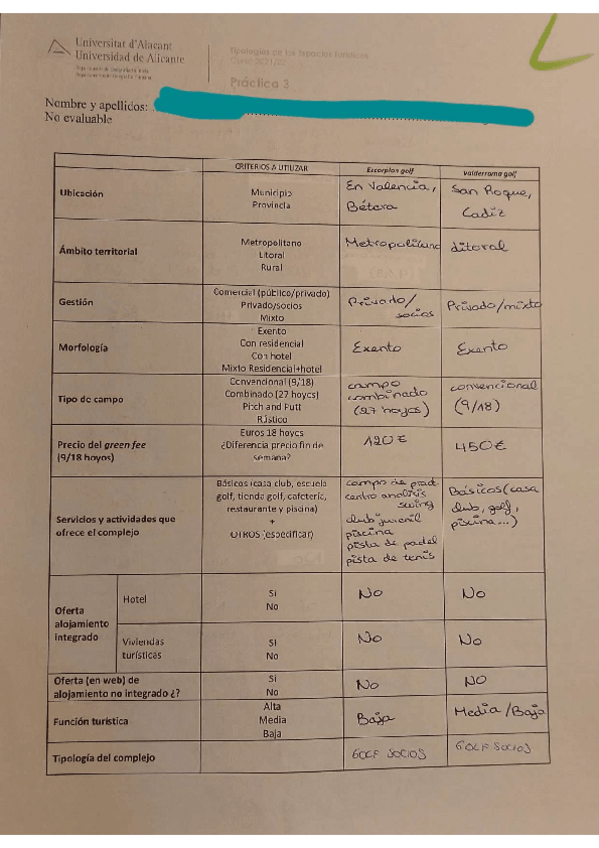 Universitat d'Alacant
Universidad de Alicante
Tipologías de los Espacios Turísticos
Curso 2021/22
Práctica 3
Nombre y apellidos:
No evaluable
CRITERIOS A UTILIZAR
Escorpion golf
Valderrama golf
Ubicación
Municipio
Provincia
En Valencia,
Bétera
San Roque,
Cadiz
Ámbito territorial
Metropolitano
Litoral
Rural
Metropolitano
Litoral
Gestión
Comercial (público/privado)
Privado/socios
Mixto
Privado/
socios
Privado/mixto
Morfología
Exento
Con residencial
Con hotel
Mixto Residencial+hotel
Exento
Exento
Tipo de campo
Convencional (9/18)
Combinado (27 hoyos)
Pitch and Putt
Rústico
campo
combinado
(27 hoyos)
convencional
(9/18)
Precio del green fee
(9/18 hoyos)
Euros 18 hoyos
¿Diferencia precio fin de
semana?
120€
450€
Servicios y actividades que
ofrece el complejo
Básicos (casa club, escuela
golf, tienda golf, cafetería,
restaurante y piscina)
+
OTROS (especificar)
campo de pract.
centro analisis
swing
club juvenil
piscina
pista de padel
pista de tenis
Básicos (casa
club, golf,
piscina...)
Oferta
alojamiento
integrado
Hotel
Si
No
No
No
Viviendas
turísticas
Si
No
No
No
Oferta (en web) de
alojamiento no integrado ¿?
Si
No
No
NO
Función turística
Alta
Media
Baja
Baja
Media/Baja
Tipología del complejo
GOLF SOCIOS
GOLF SOCIOS